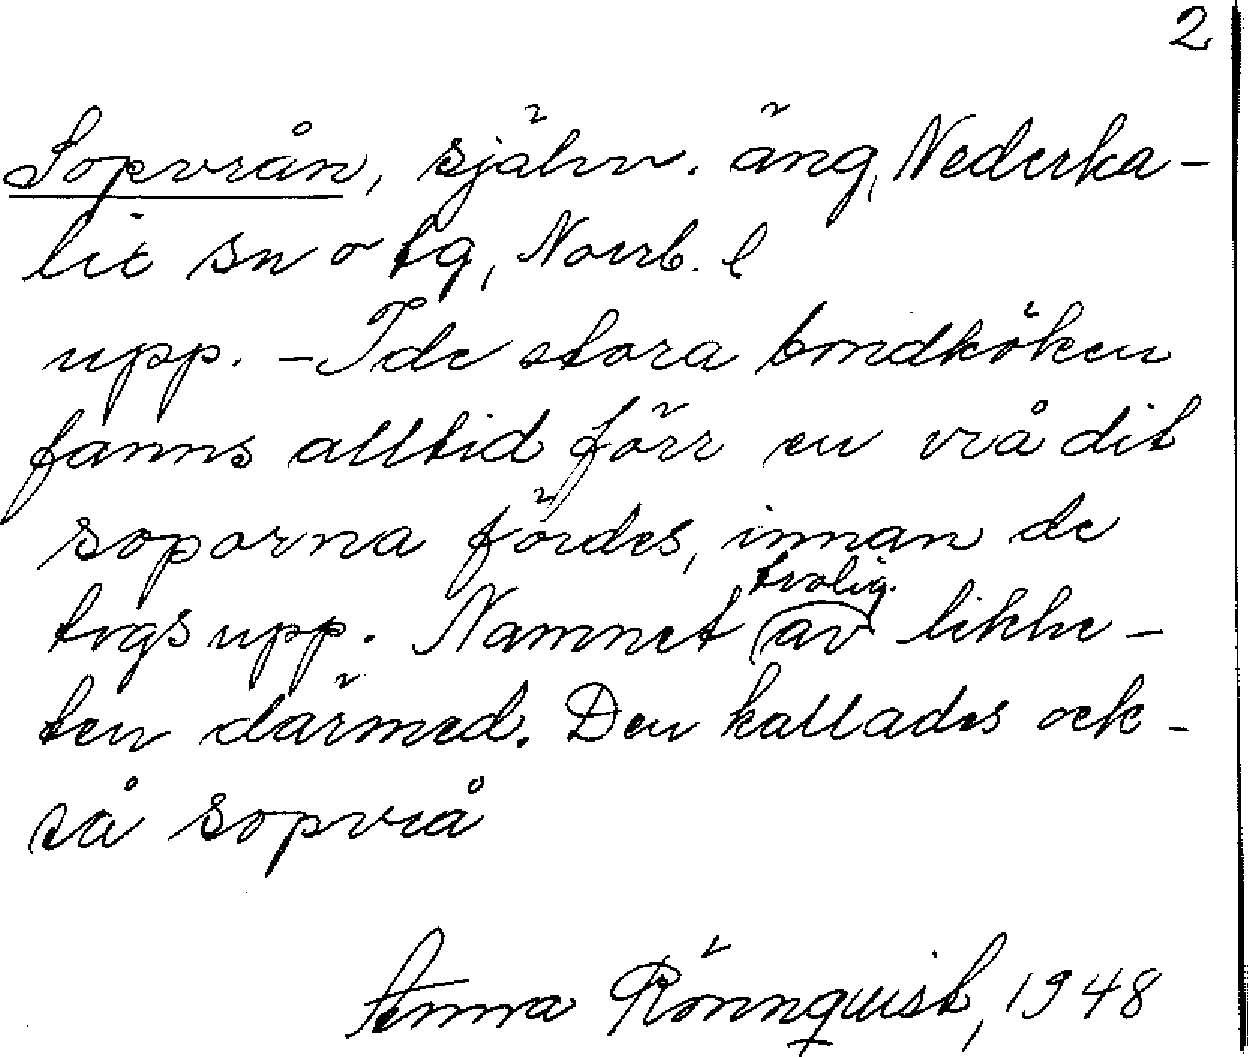 2
Sopvrån, självv. äng, Nederka-
lix sn o tg, Norrb. l
upp. - I de stora bondköken
fanns alltid förr en vrå dit
soporna fördes, innan de
trolig.
togs upp. Namnet (av) likhe-
ten därmed. Den kallades ock-
så sopvrå
Anna Rönnquist, 1948